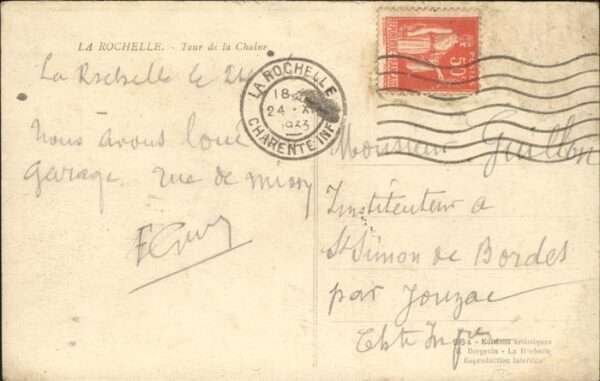 LA ROCHELLE. - Tour de la Chaine
La Rochelle le 24
LA ROCHELLE
18
24 - XI
1933
CHARENTE INFRE
50c
Nous avons loué
garage. rue de missy
Monsieur Guillon
Instituteur a
St Simon de Bordes
par Jonzac
Chte Infre
Editions artistiques
Bergevin - La Rochelle
Reproduction interdite